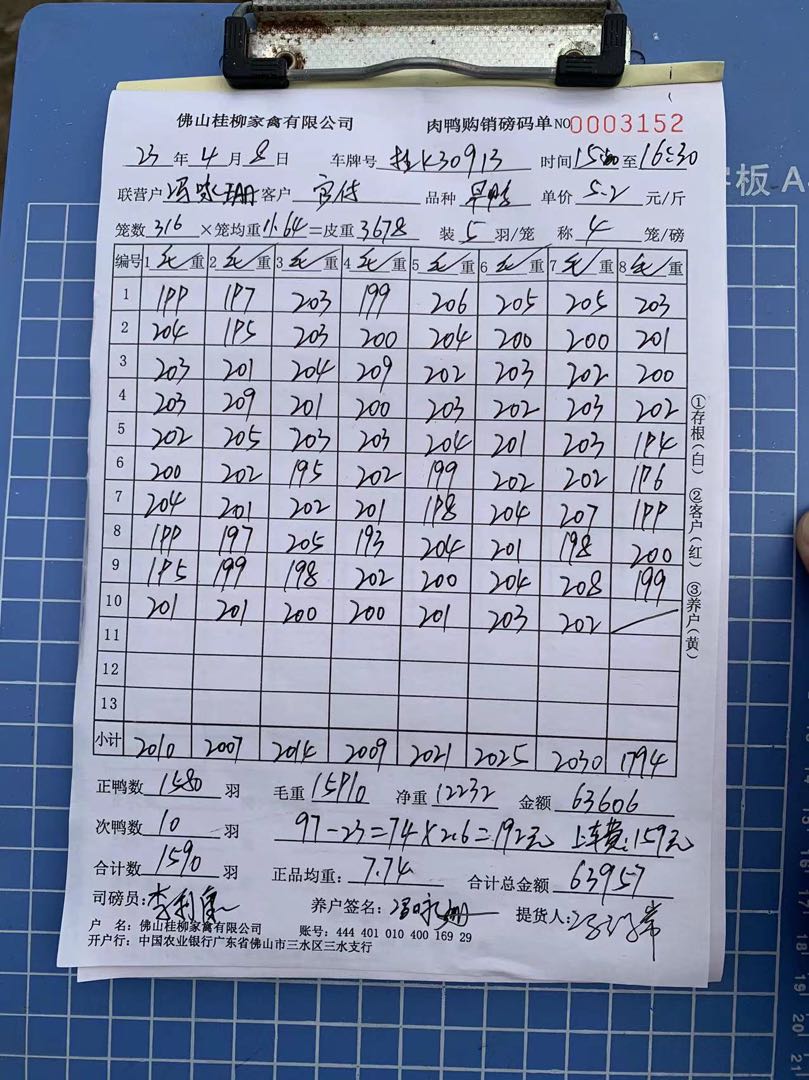 佛山桂柳家禽有限公司 肉鸭购销磅码单 NO 0003152
23年4月8日 车牌号 桂K30913 时间 至16:30
联营户 冯咏珊 客户 品种 单价5.2元/斤
笼数316×笼均重11.64=皮重3678 装5羽/笼 称4笼/磅
编号 1毛重 2毛重 3毛重 4毛重 5毛重 6毛重 7毛重 8毛重
1 199 197 203 199 206 205 205 203
2 204 195 203 200 204 200 200 201
3 203 201 204 209 202 203 202 200
4 203 209 201 200 203 202 203 202
5 202 205 203 203 204 201 203 194
6 200 202 195 202 199 202 202 196
7 204 201 202 201 198 204 207 199
8 199 197 205 193 204 201 198 200
9 195 199 198 202 200 204 208 199
10 201 201 200 200 201 203 202 /
11
12
13
小计 2010 2007 2014 2009 2021 2025 2030 1794
正鸭数1580羽 毛重15910 净重12232 金额63606
次鸭数10羽 97-23=74×2.6=192元 上车费:159元
合计数1590羽 正品均重:7.74 合计总金额63957
司磅员: 养户签名:冯咏珊 提货人:
户 名:佛山桂柳家禽有限公司 账号:444 401 010 400 169 29
开户行:中国农业银行广东省佛山市三水区三水支行
①存根(白) ②客户(红) ③养户(黄)
板 A
16
17
18
19
20
21